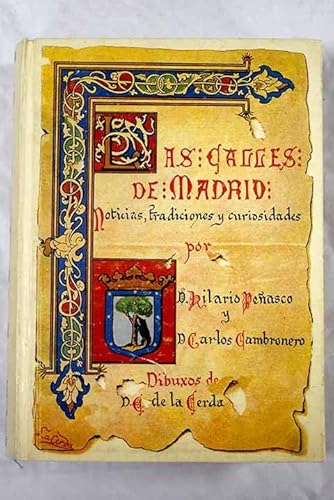 LAS : CALLES :
DE : MADRID :
Noticias, tradiciones y curiosidades
por
D. Hilario Peñasco
y
D. Carlos Cambronero
Dibuxos de
D. C. de la Cerda
La Cerda